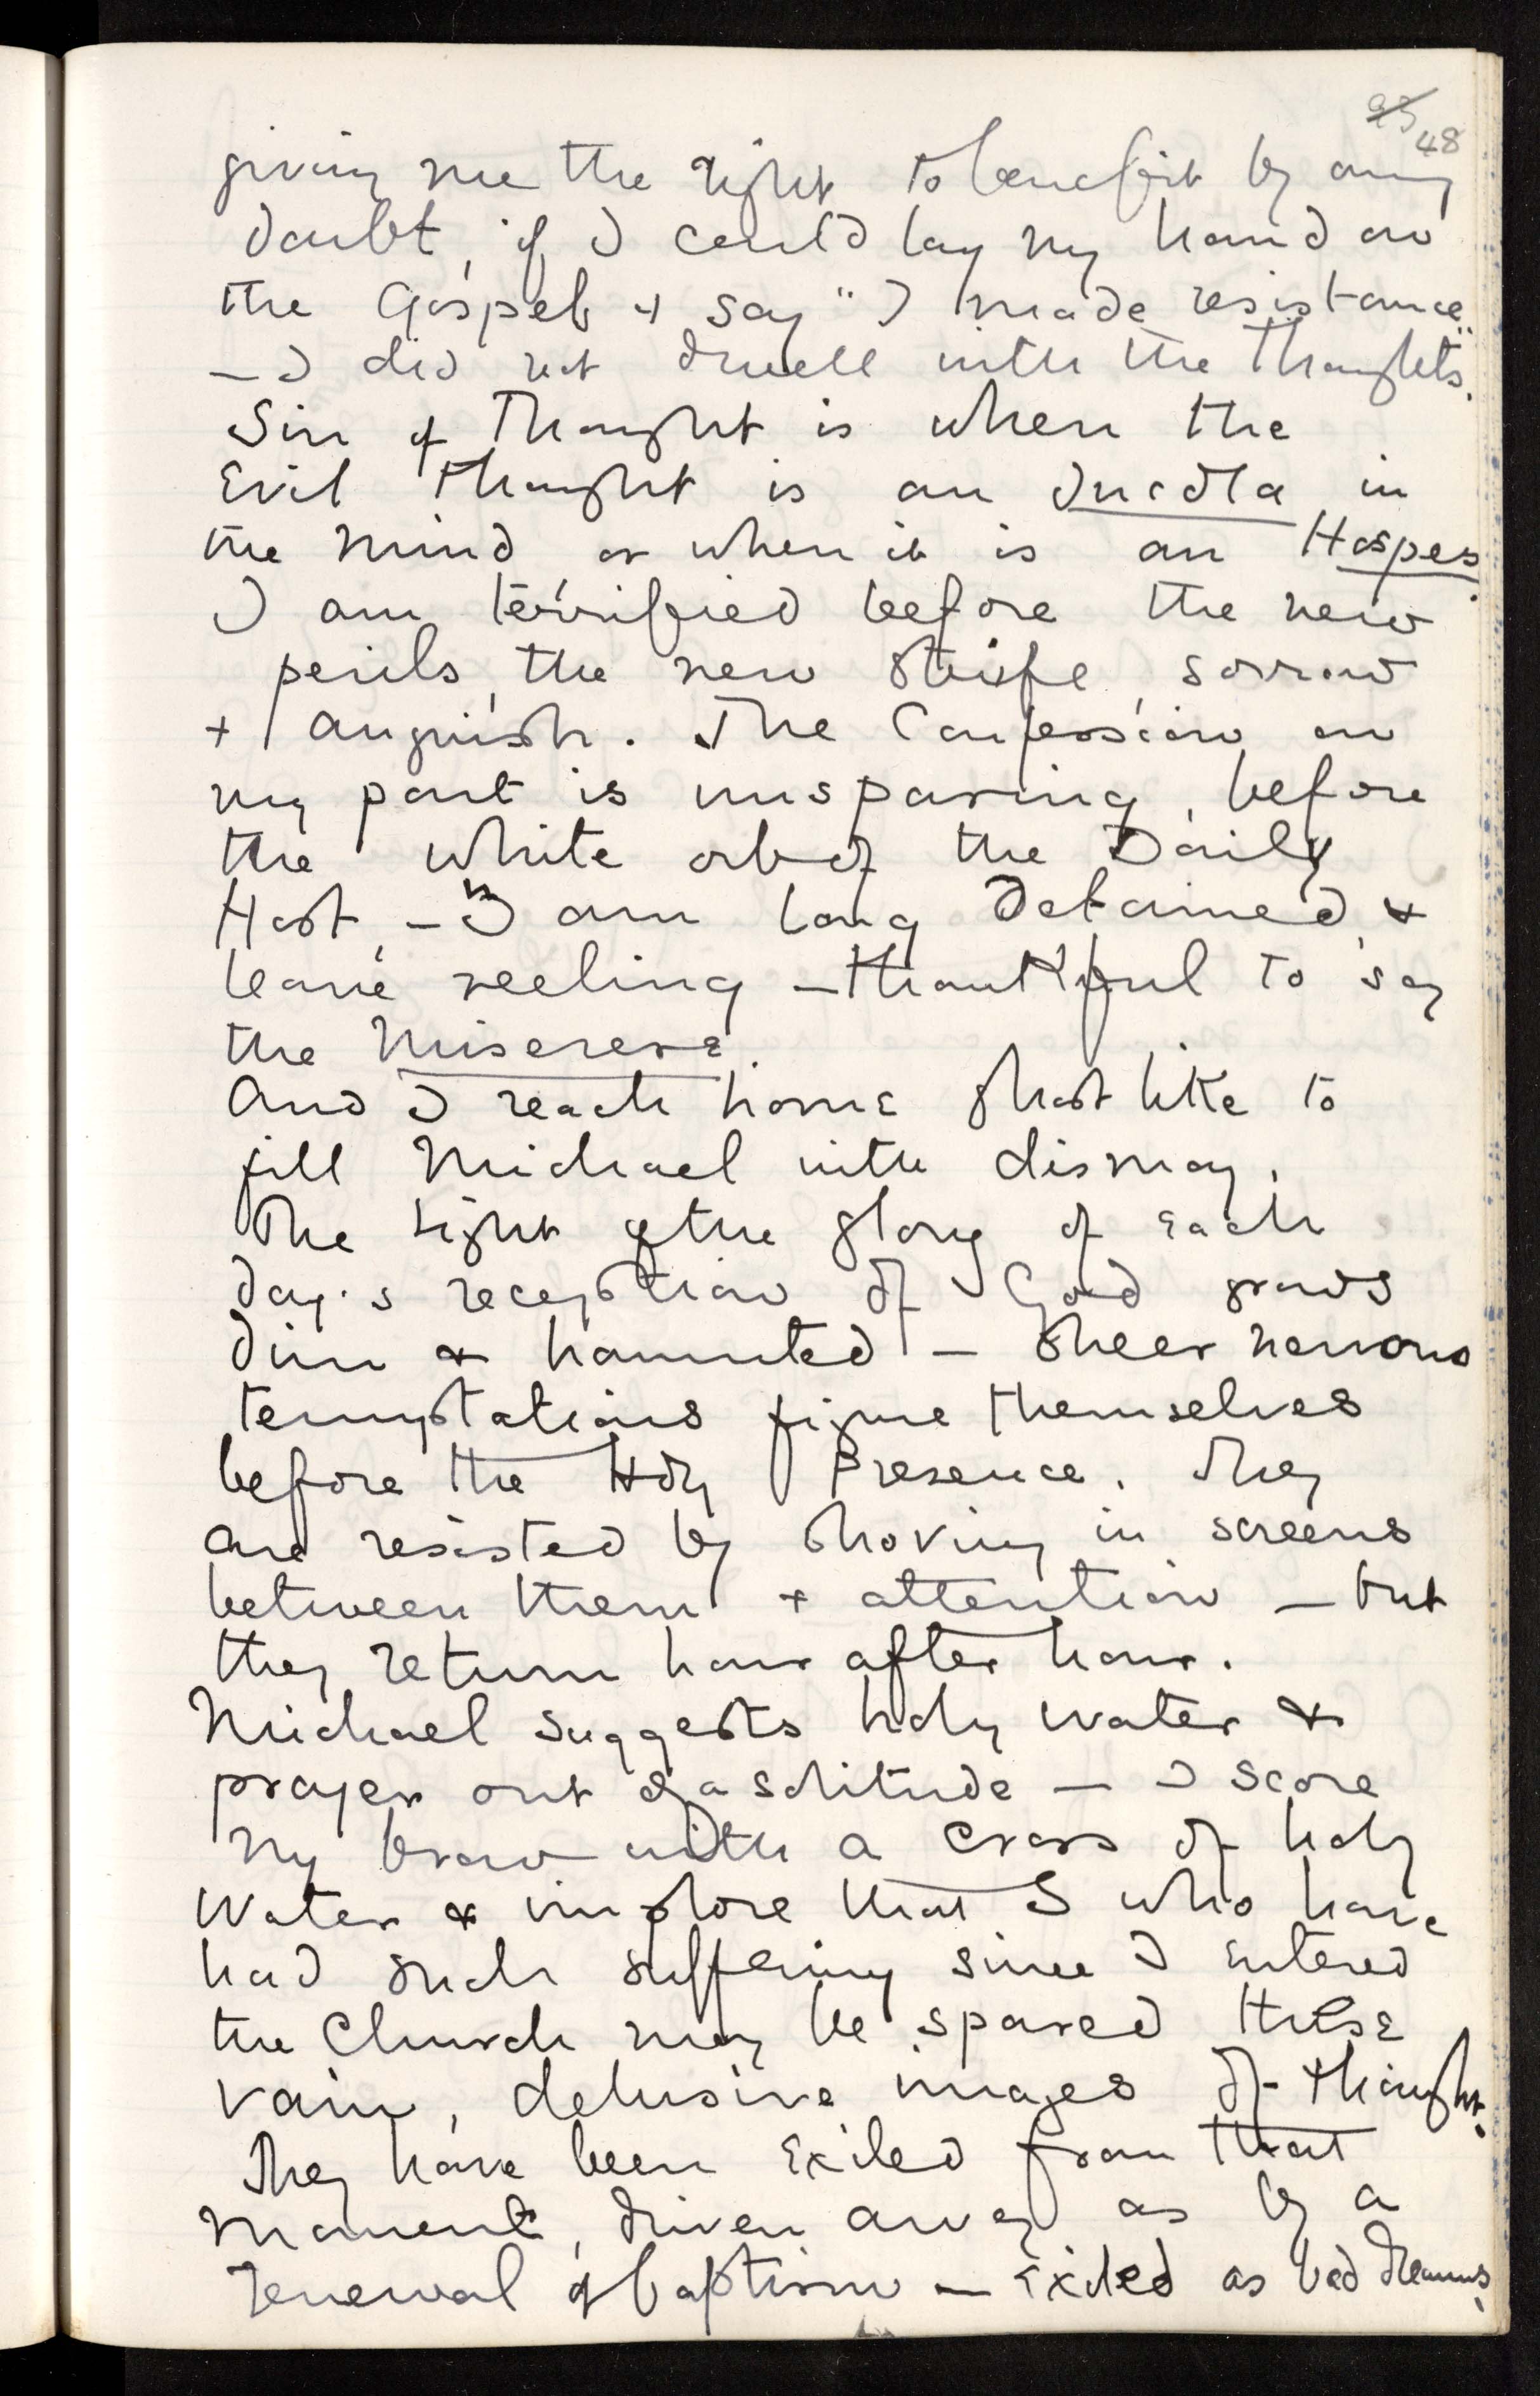 95 48
giving me the right to benefit by any
doubt, if I could lay my hand on
the Gospels & say "I made resistance
— I did not dwell with the thoughts."
Sin of Thought is when the
Evil thought is an Incola in
the Mind or when it is an Hospes.
I am terrified before the new
perils, the new strife, sorrow
& anguish. The Confession on
my part is unsparing, before
the white orb of the Daily
Host — I am long detained, &
leave reeling — thankful to say
the Miserere.
And I reach home ghost like to
fill Michael with dismay.
The light of the glory of each
day's reception of God grows
dim & haunted — sheer nervous
temptations figure themselves
before the Holy Presence. They
are resisted by shoving in screens
between them & attention — but
they return hour after hour.
Michael suggests holy water &
prayer out of a solitude — I score
my brow with a cross of holy
Water & implore that I who have
had such suffering since I entered
the Church may be spared these
vain, delusive images of thought.
They have been exiled from that
moment, driven away as by a
renewal of baptism — Exiled as bad dreams,